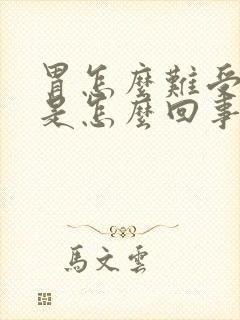 胃怎麼難受
是怎麼回事
馬文雲